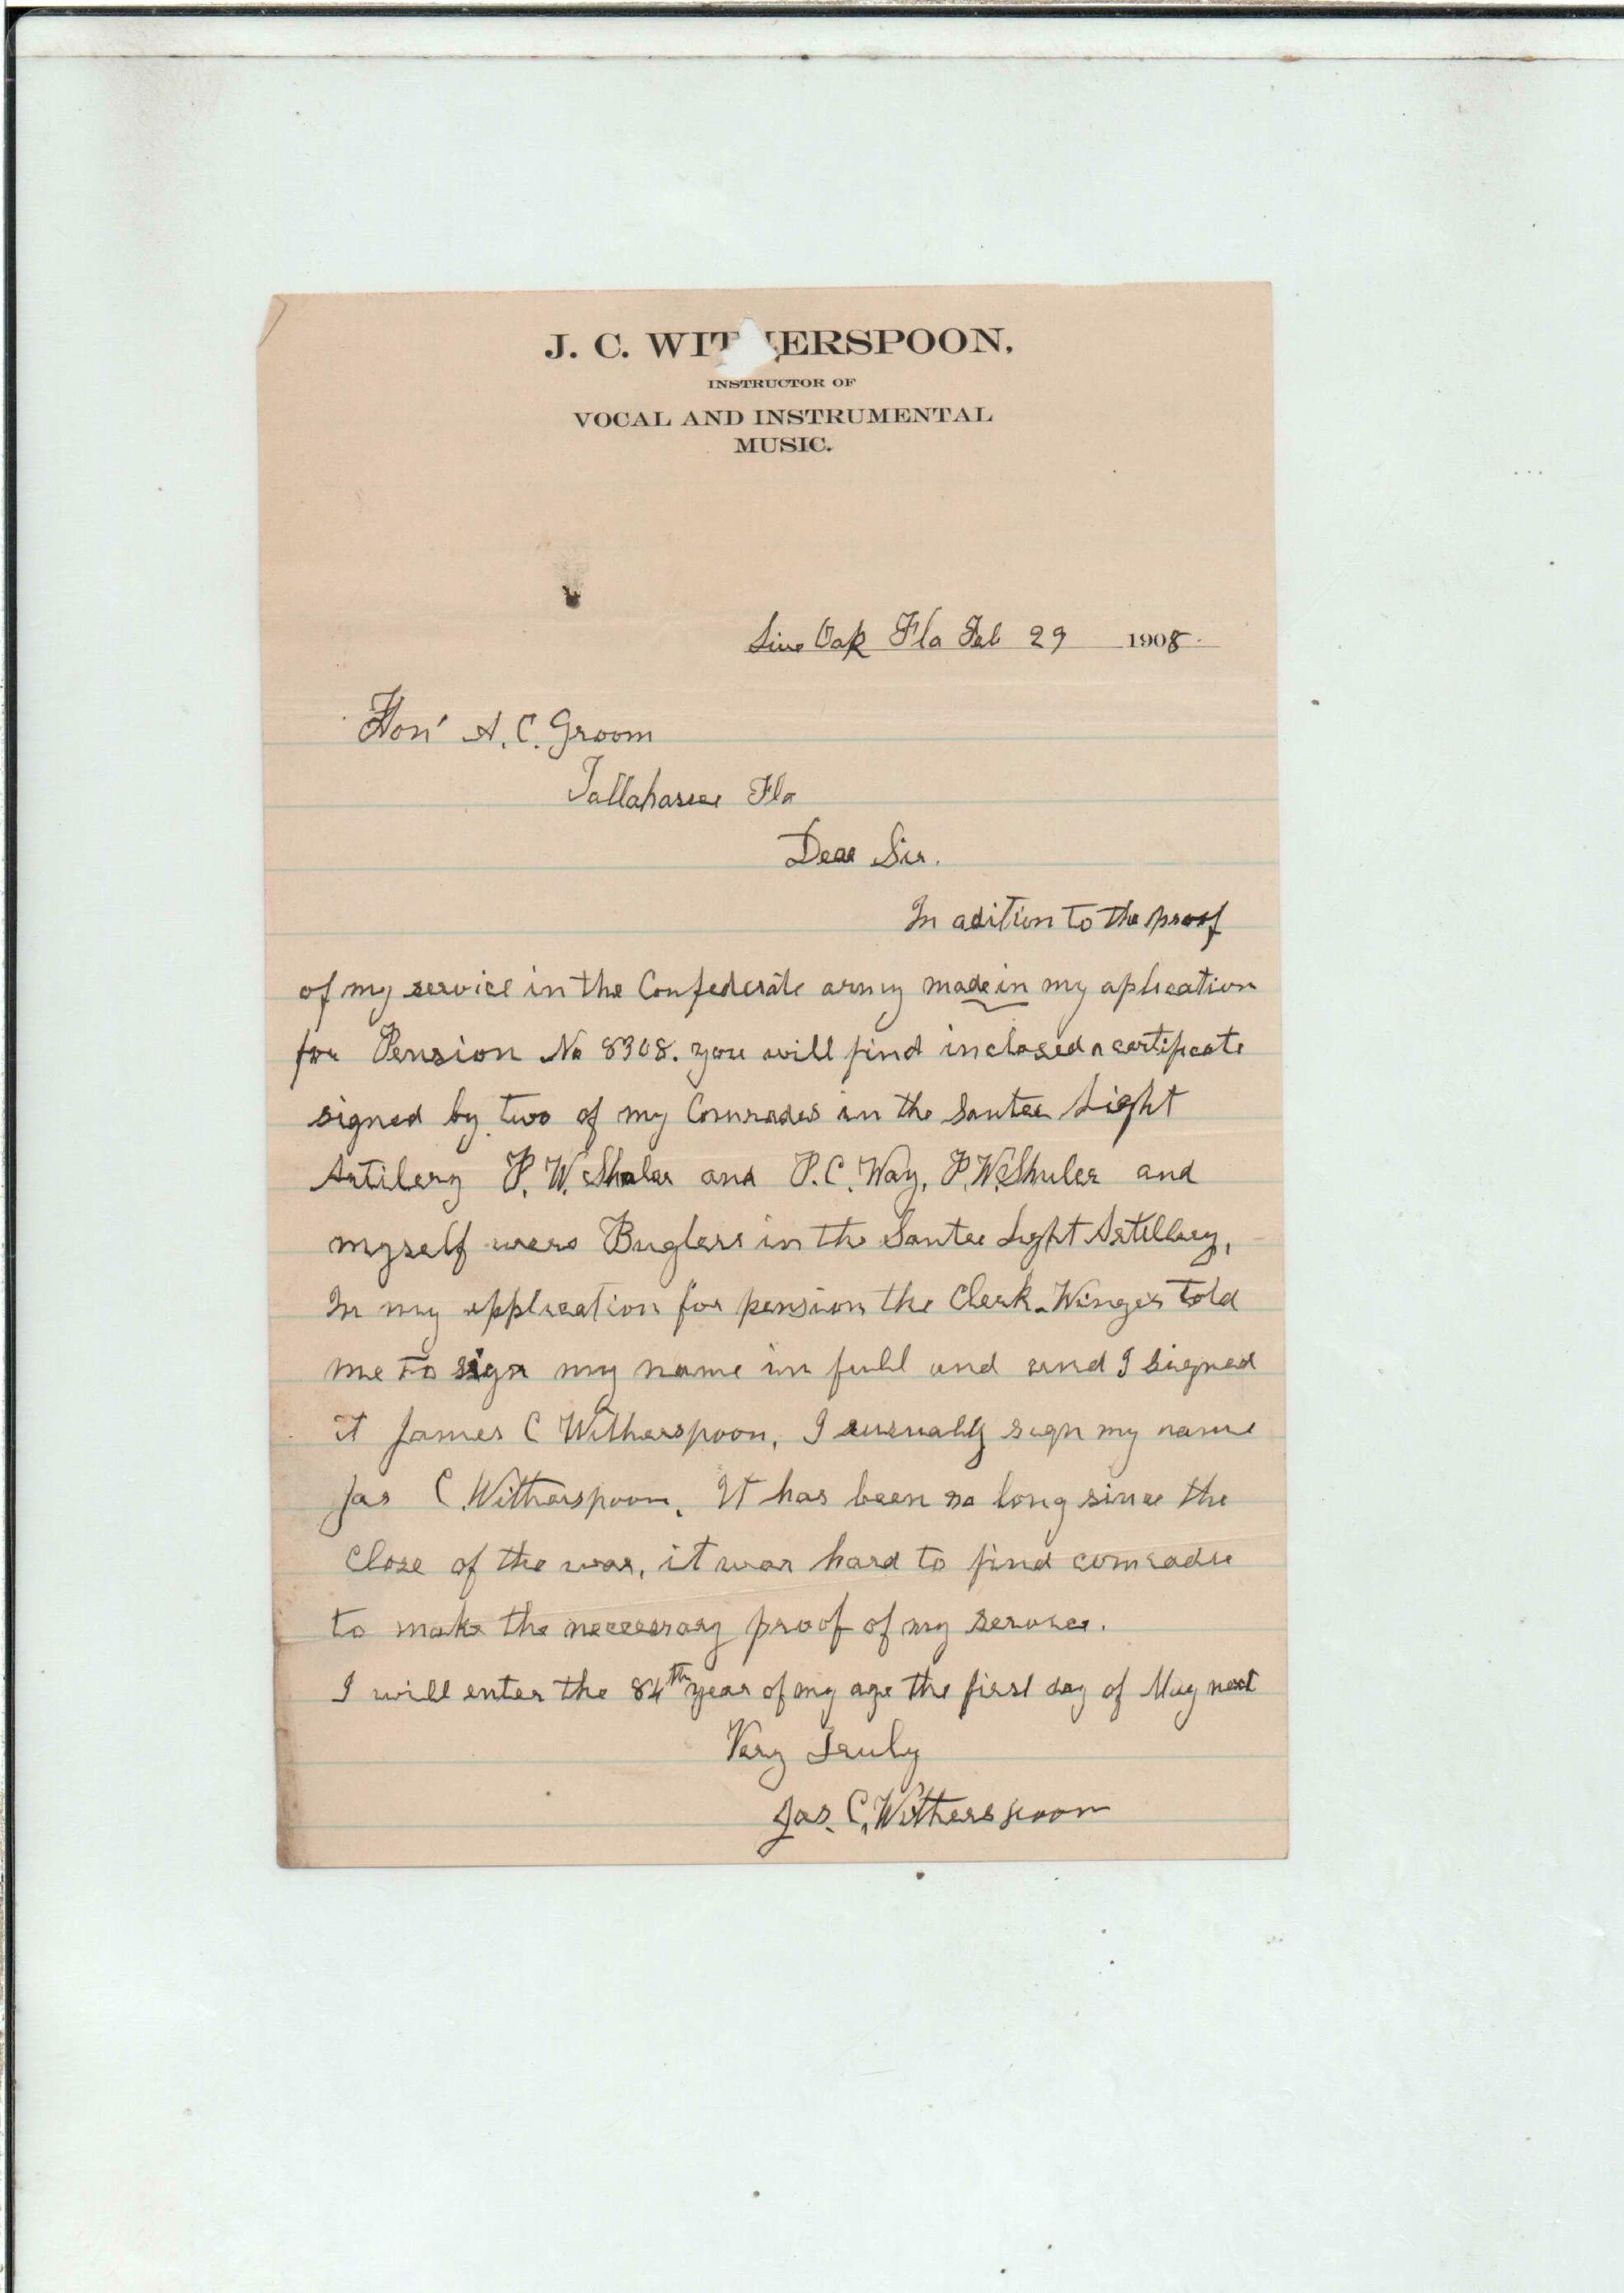 J. C. WITHERSPOON,
INSTRUCTOR OF
VOCAL AND INSTRUMENTAL
MUSIC.
Live Oak Fla Feb 29 1908.
Hon' A. C. Groom
Tallahassee Fla
Dear Sir.
In adition to the proof
of my service in the Confederate army made in my aplication
for Pension No 8308. you will find inclosed a certificate
signed by two of my Comrades in the Santee Light
Artilery P. W. Shuler and P. C. Way, P. W. Shuler and
myself were Buglers in the Santee Light Artillery,
In my application for pension the Clerk Winger told
me to sign my name in full and and I signed
it James C Witherspoon, I usually sign my name
Jas C. Witherspoon. It has been so long since the
close of the war, it was hard to find comrades
to make the necessary proof of my service.
I will enter the 84th year of my age the first day of May next
Very Truly
Jas. C. Witherspoon